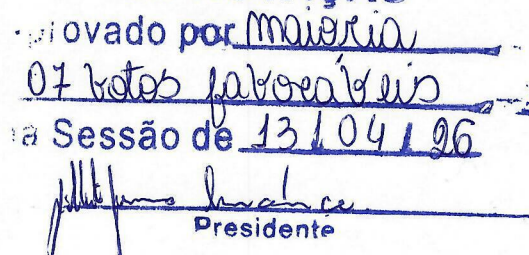 provado por maioria
07 votos favoráveis
a Sessão de 13/04/26
Presidente